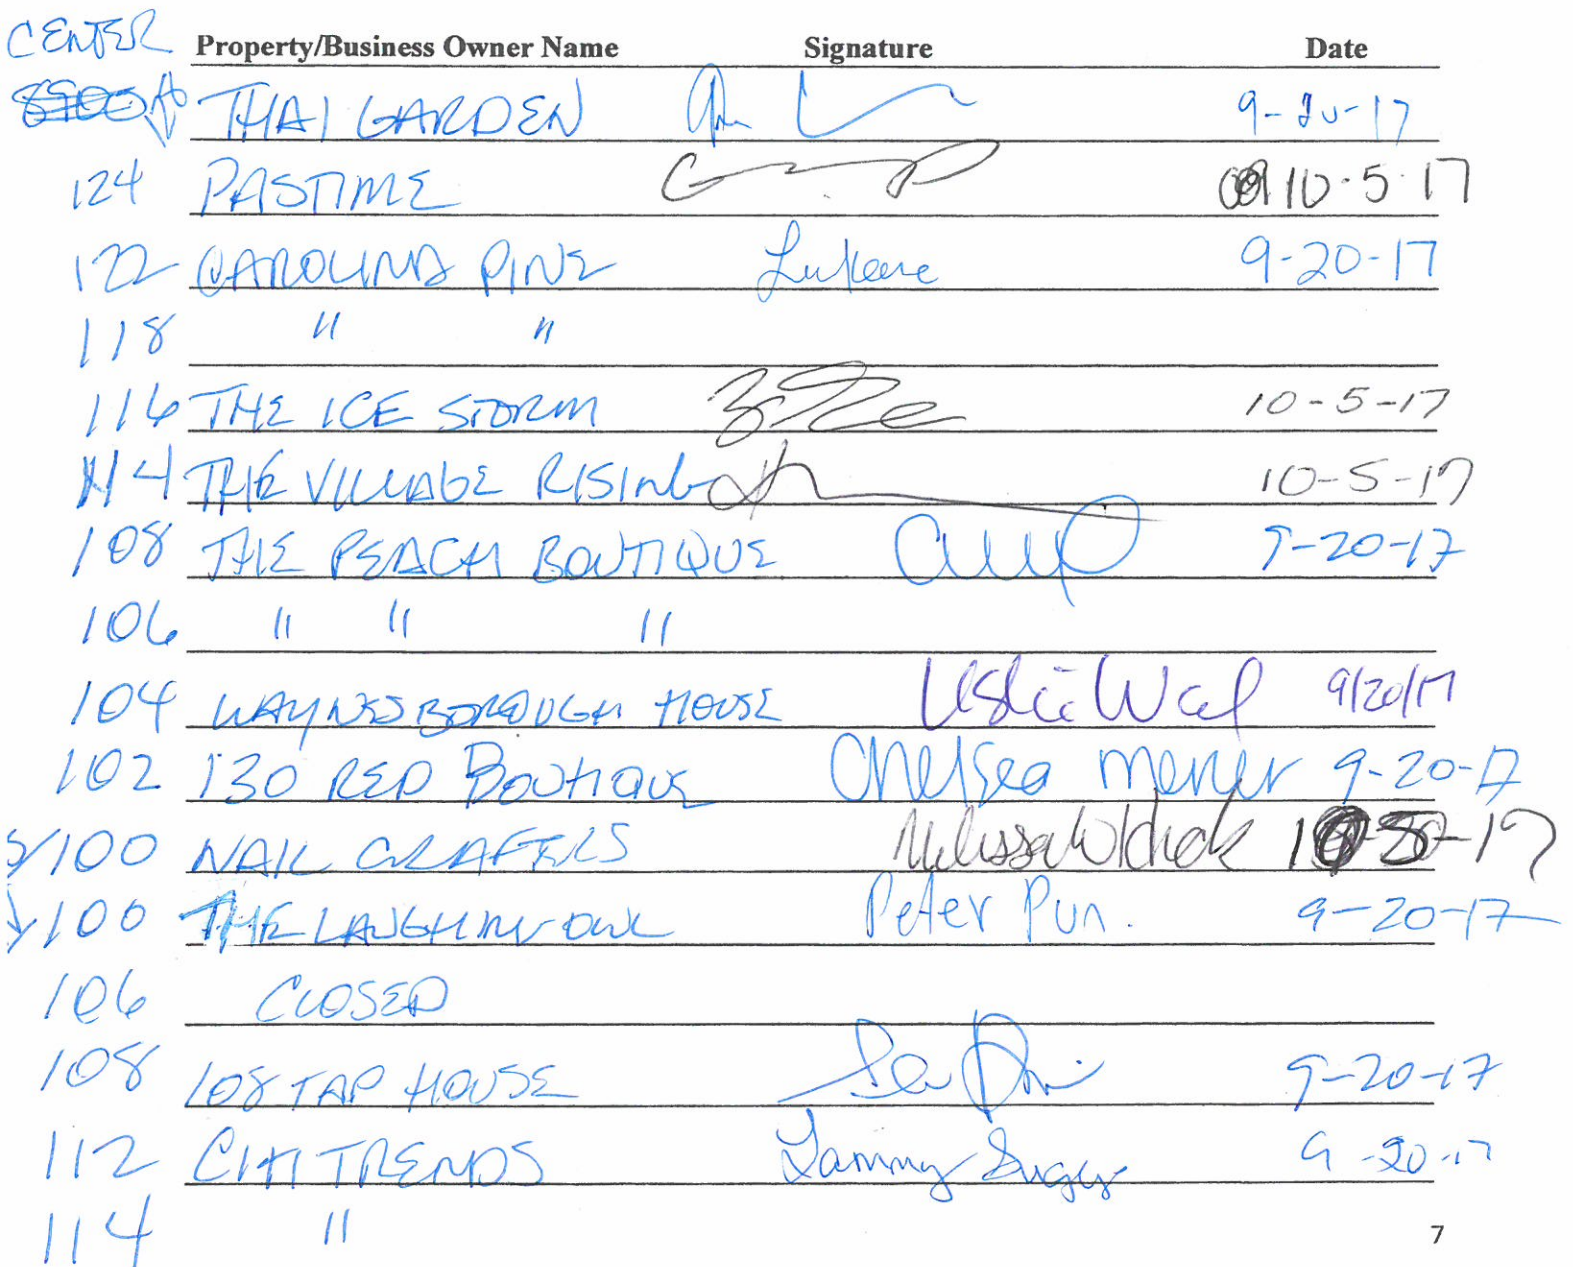 CENTER
Property/Business Owner Name Signature Date
THAI GARDEN 9-20-17
124 PASTIME 10-5-17
122 CAROLINA PINE 9-20-17
118 " "
116 THE ICE STORM 10-5-17
114 THE VILLAGE RISING 10-5-17
108 THE PEACH BOUTIQUE 9-20-17
106 " " "
104 WAYNESBOROUGH HOUSE Leslie 9/20/17
102 130 RED BOUTIQUE Chelsea 9-20-17
100 NAIL CRAFTERS Melissa
100 THE LAUGHING OWL Peter Pun. 9-20-17
106 CLOSED
108 108 TAP HOUSE 9-20-17
112 CITI TRENDS Tammy 9-20-17
114 "
7